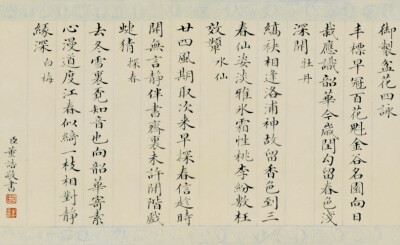 御製盆花四詠
丰標早冠百花魁金谷名園向日
栽應識韶華今歲閏勾留春色淺
深開 牡丹
縞袂相逢洛浦神故留香色到三
春仙姿淡雅氷霜性桃李紛敷枉
效顰 水仙
廿四風期取次来早探春信趂時
開無言静伴書齋裏未許閒階戯
蜨猜 探春
去冬雪裏覔知音也向韶華寄素
心漫道度江春似綺一枝相對静
緣深 白梅
臣董誥敬書